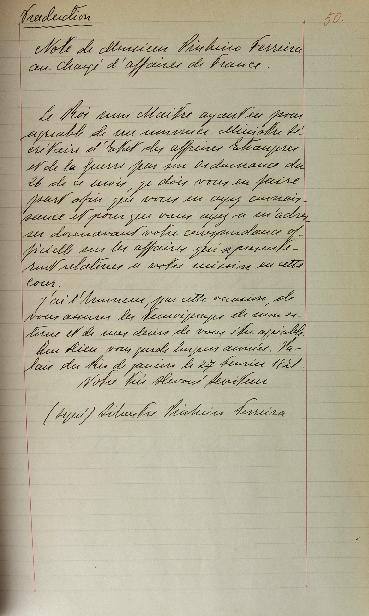 Traduction
50.
Note de Monsieur Pinheiro Ferreira
au chargé d'affaires de France.
Le Roi mon Maître ayant eu pour
agréable de me nommer Ministre Se
crétaire d'Etat des affaires Etrangères
et de la Guerre par son ordonnance du
26 de ce mois, je dois vous en faire
part afin que vous en ayez connais-
sance et pour que vous ayez à m'adres
ser dorénavant votre correspondance of
ficielle sur les affaires qui se présente-
ront relatives à votre mission en cette
cour.
J'ai l'honneur, par cette occasion, de
vous assurer les témoignages de mon es-
time et de mes désirs de vous être agréable
Que Dieu vous garde longues années. Pa-
lais du Rio de Janeiro le 27 février 1821
Votre très dévoué serviteur
(signé) Silvestre Pinheiro Ferreira